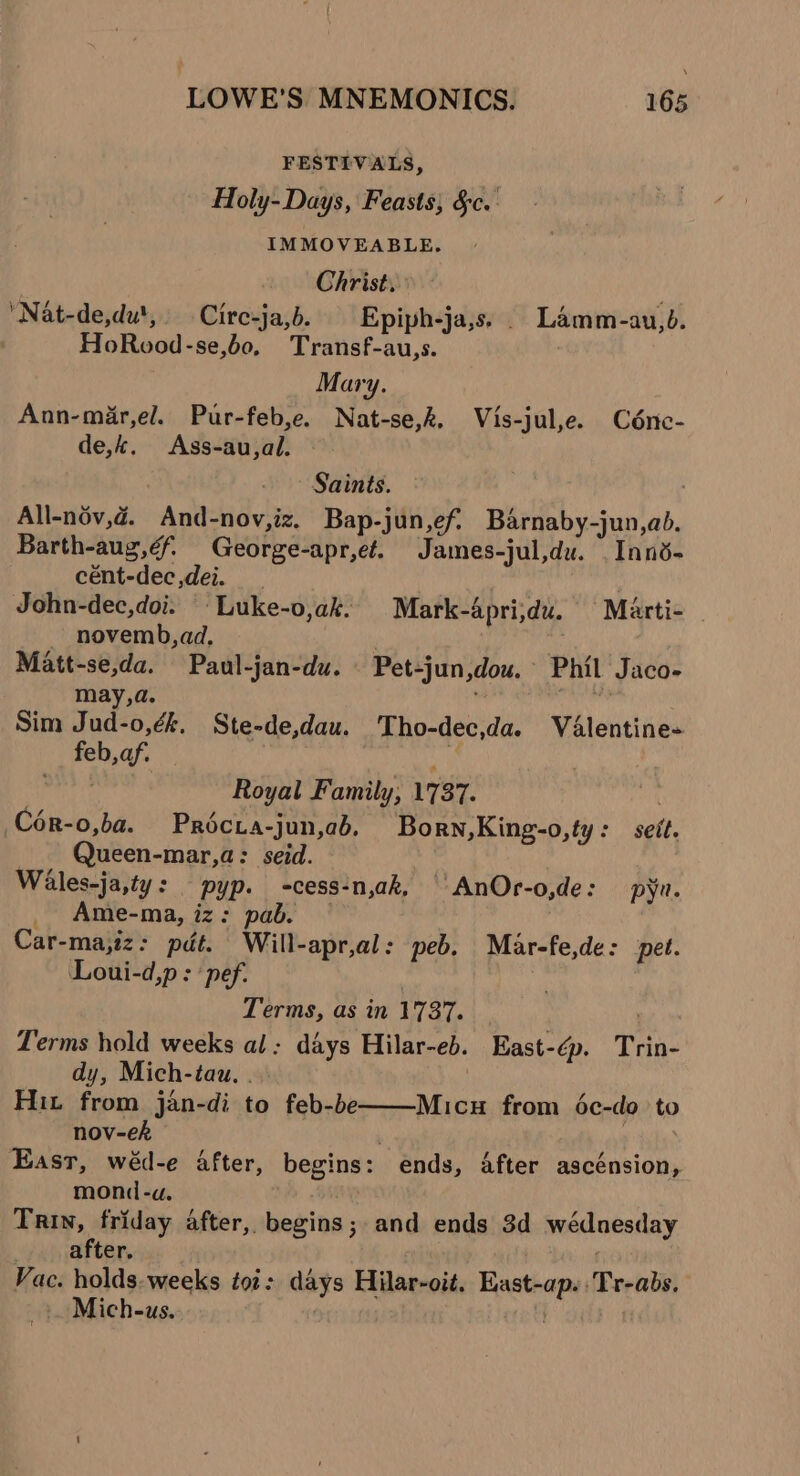 LOWE'S MNEMONICS. 165
FESTIVALS,
Holy-Days, Feasts, &c.
IMMOVEABLE.
Christ.
Nát-de,du', Círc-ja,b. Epiph-ja,s. Lámm-au,b.
HoRood-se,bo. Transf-au,s.
Mary.
Ann-mär,el. Púr-feb,e. Nat-se,k. Vís-jul,e. Cónc-
de,k. Ass-au,al.
Saints.
All-növ,ä. And-nov,iz. Bap-jun,ef. Bárnaby-jun,ab.
Barth-aug,éf. George-apr,et. James-jul,du. Innö-
cént-dec,dei.
John-dec,doi. Luke-o,ak. Mark-ápri,du. Márti-
novemb,ad.
Mátt-se,da. Paul-jan-du. Pet-jun,dou. Phíl Jaco-
may,a.
Sim Jud-o,ék. Ste-de,dau. Tho-dec,da. Válentine-
feb,af.
Royal Family, 1737.
Cór-o,ba. PRóCLA-jun,ab. BORN,King-o,ty: seít.
Queen-mar,a: seid.
Wáles-ja,ty: pyp. -cess-n,ak, AnOr-o,de: pýn.
Ame-ma, iz: pab.
Car-ma,iz: pát. Will-apr,al: peb. Már-fe,de: pet.
Loui-d,p: pef.
Terms, as in 1737.
Terms hold weeks al: dáys Hilar-eb. East-ép. Trin-
dy, Mich-tau.
HIL from ján-di to feb-be——MICH from óc-do to
nov-ek
EAST, wëd-e áfter, begins: ends, áfter ascénsion,
mond-a.
TRIN, fríday áfter, begins; and ends 3d wédnesday
after.
Vac. holds weeks toi: dáys Hilar-oit. East-ap. Tr-abs.
Mich-us.